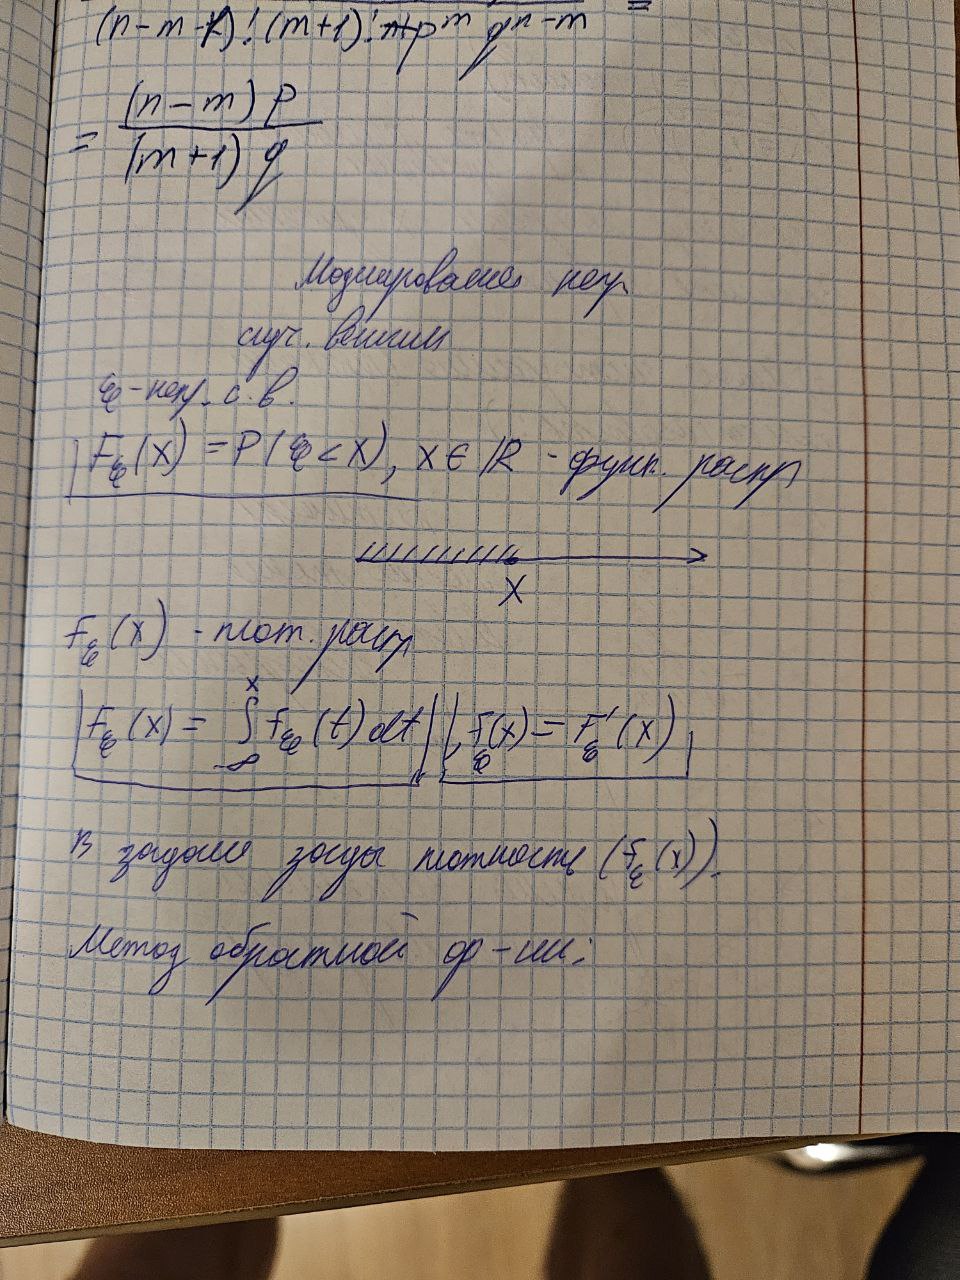 (n-m-1)!(m+1)! p^m q^n-m =
= (n-m) p
(m+1) q
Моделирование непр.
случ. величин
ξ - непр. с. в.
F_ξ(x) = P(ξ < x), x ∈ ℝ - функ. распр
x
f_ξ(x) - плот. распр
F_ξ(x) = ∫_{-∞}^{x} f_ξ(t) dt f_ξ(x) = F'_ξ(x)
В задаче плотность (f_ξ(x)).
Метод обратной ф-ии: